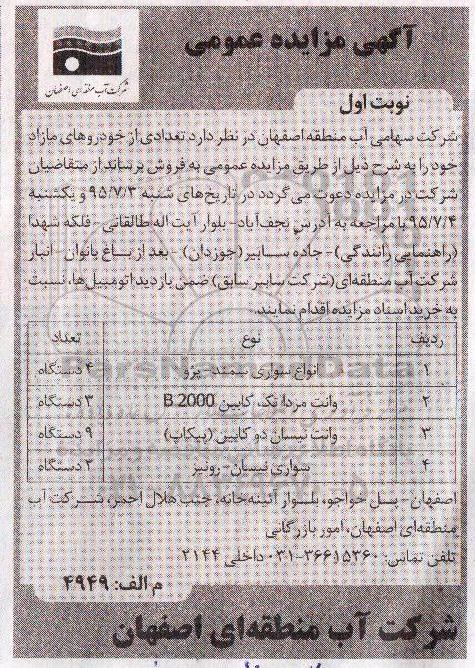 آگهی مزایده عمومی
شرکت آب منطقه‌ای اصفهان
نوبت اول
شرکت سهامی آب منطقه اصفهان در نظر دارد تعدادی از خودروهای مازاد
خود را به شرح ذیل از طریق مزایده عمومی به فروش برساند از متقاضیان
شرکت در مزایده دعوت می گردد در تاریخ‌های شنبه ۹۵/۷/۳ و یکشنبه
۹۵/۷/۴ با مراجعه به آدرس نجف‌آباد - بلوار آیت اله طالقانی - فلکه شهدا
(راهنمایی رانندگی) - جاده سابیر (جوزدان) - بعد از باغ بانوان - انبار
شرکت آب منطقه‌ای (شرکت سابیر سابق) ضمن بازدید اتومبیل‌ها، نسبت
به خرید اسناد مزایده اقدام نمایند.
ردیف نوع تعداد
۱ انواع سواری سمند - پژو ۴ دستگاه
۲ وانت مزدا تک کابین B.2000 ۳ دستگاه
۳ وانت نیسان دو کابین (پیکاپ) ۹ دستگاه
۴ سواری نیسان - رونیز ۲ دستگاه
اصفهان - پل خواجو، بلوار آئینه‌خانه، جنب هلال احمر، شرکت آب
منطقه‌ای اصفهان، امور بازرگانی
تلفن تماس: ۳۶۶۱۵۳۶۰-۰۳۱ داخلی ۲۱۴۴
م الف: ۴۹۴۹
شرکت آب منطقه‌ای اصفهان